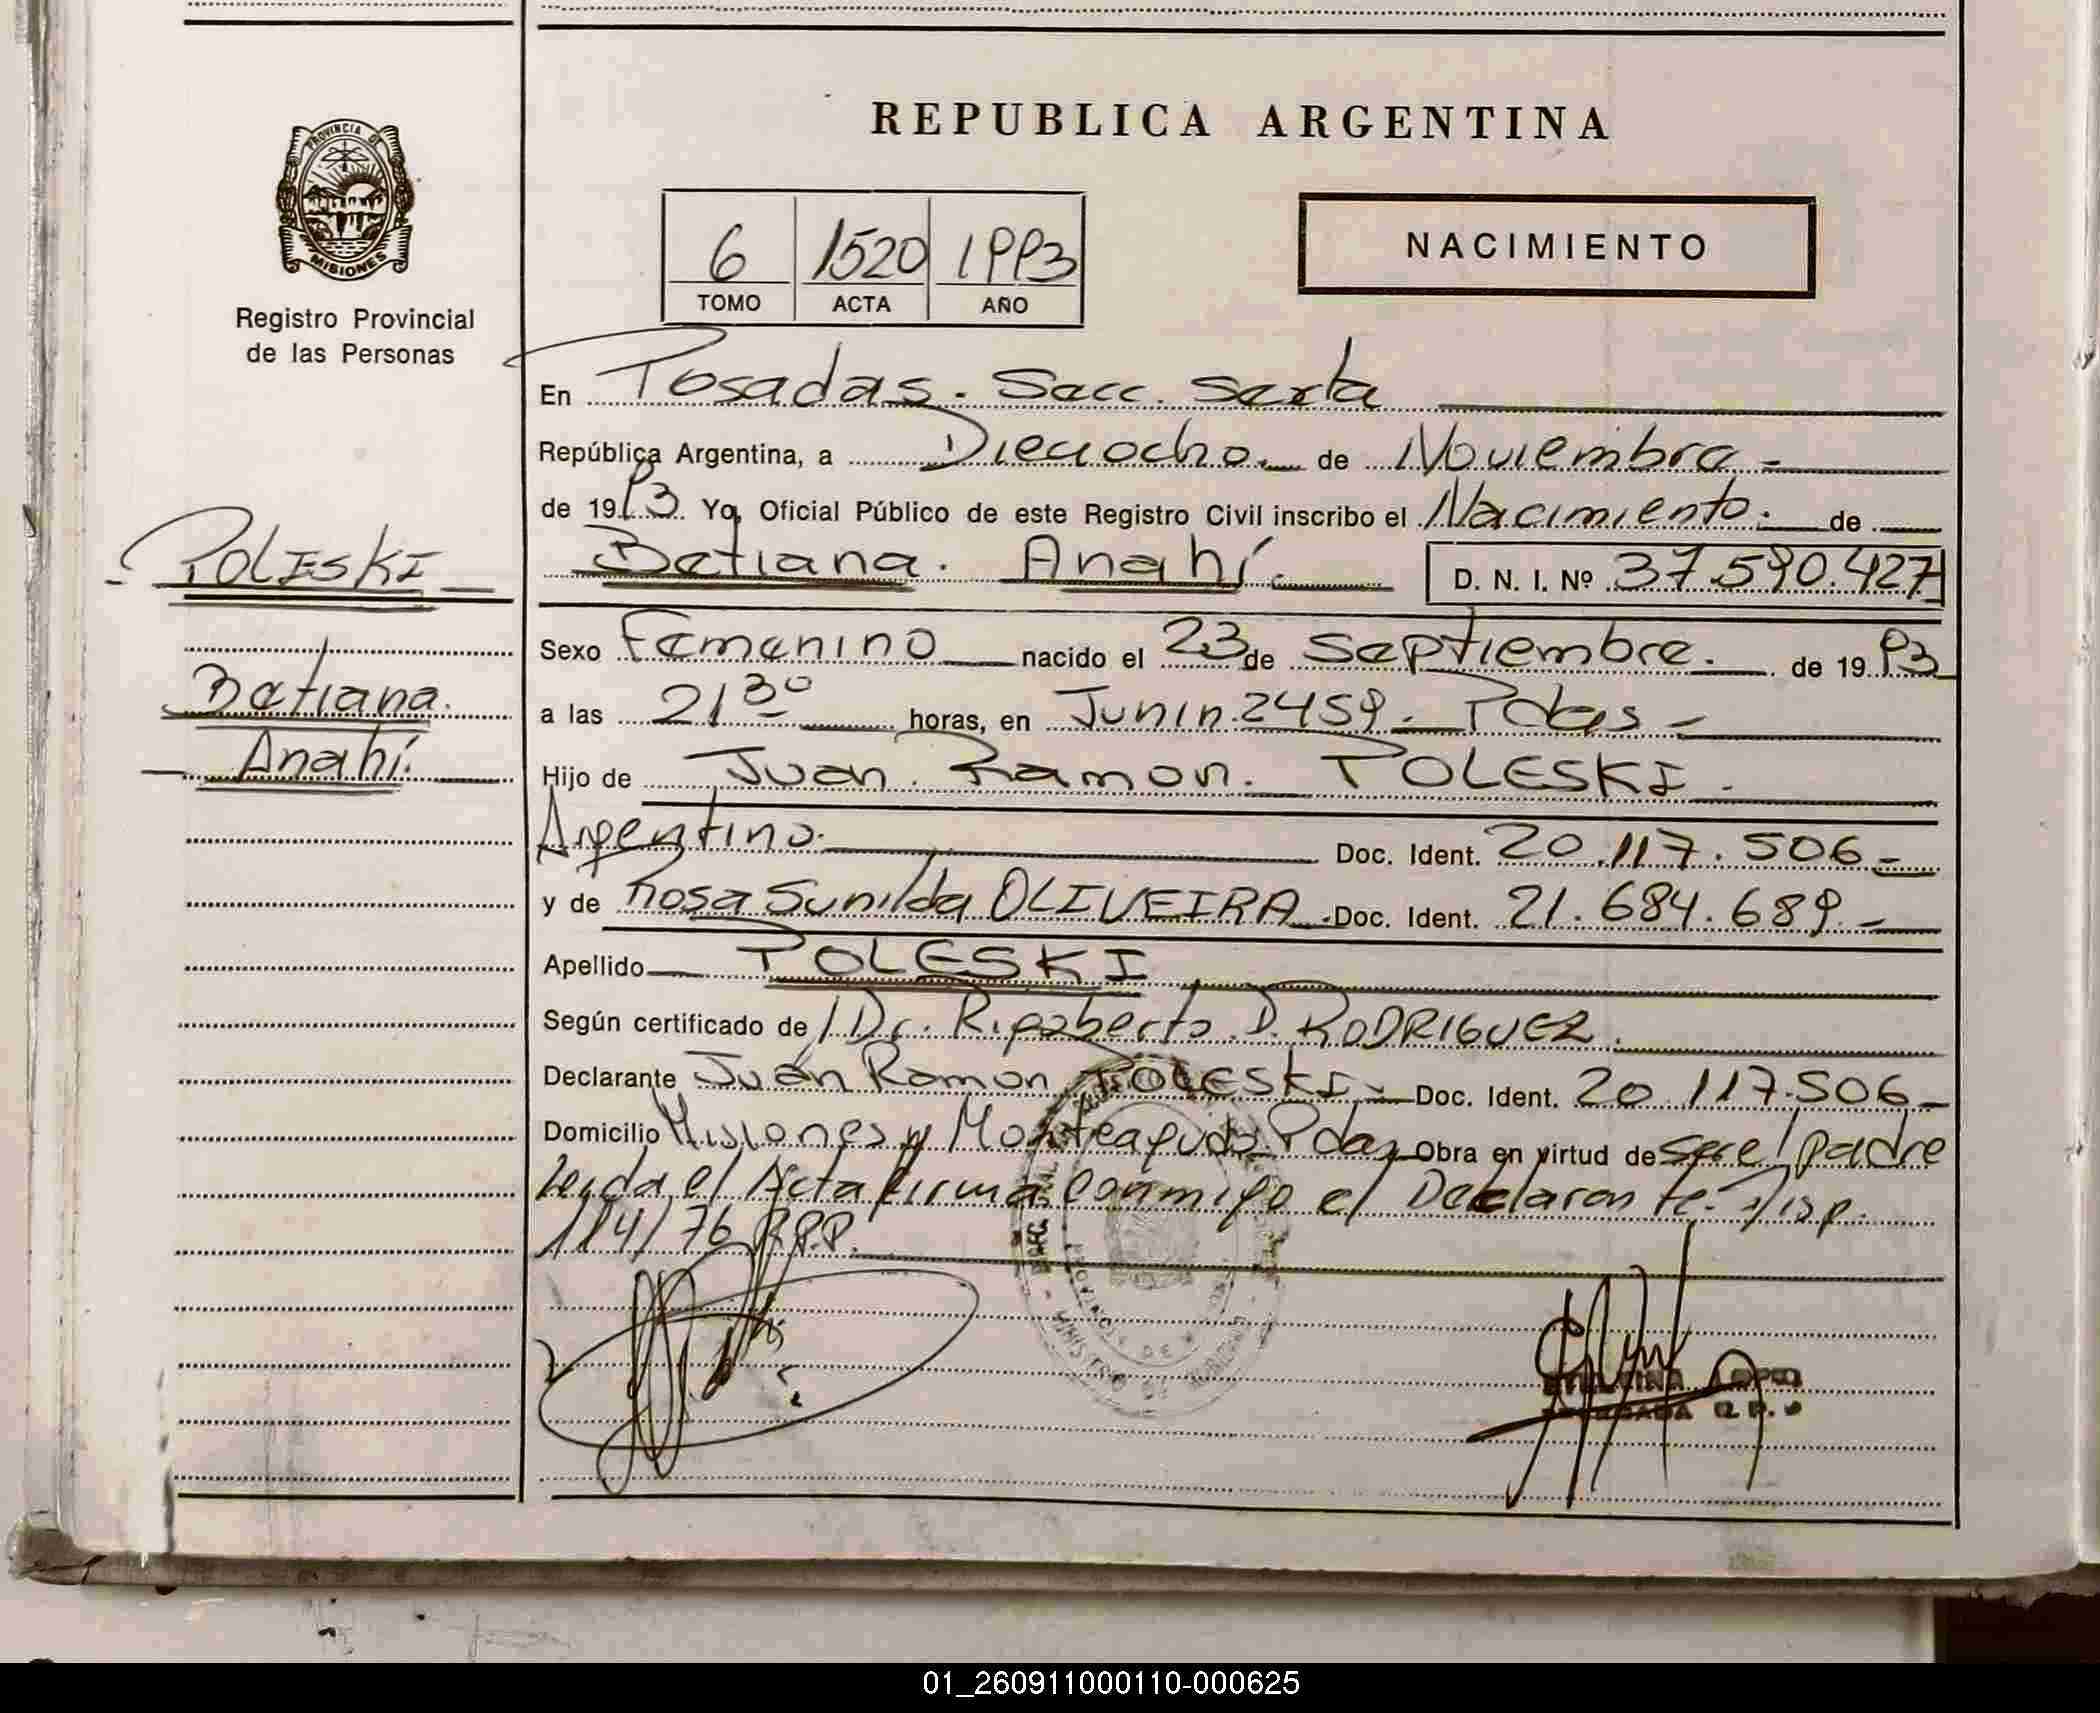 REPUBLICA ARGENTINA
PROVINCIA DE
MISIONES
Registro Provincial
de las Personas
6 1520 1993
TOMO ACTA AÑO
NACIMIENTO
En Posadas. Secc. Sexta
República Argentina, a Dieciocho. de Noviembre -
de 1993. Yo, Oficial Público de este Registro Civil inscribo el Nacimiento. de
Betiana. Anahí. D. N. I. Nº 37.590.427
POLESKI
Betiana.
Anahí.
Sexo Femenino nacido el 23 de Septiembre. de 1993
a las 21 30 horas, en Junin 2459. Pdas -
Hijo de Juan Ramon. POLESKI -
Argentino. Doc. Ident. 20.117.506 -
y de Rosa Sunilda OLIVEIRA. Doc. Ident. 21.684.689. -
Apellido POLESKI
Según certificado de / Dr. Rigoberto D. RODRIGUEZ.
Declarante Juan Ramon POLESKI - Doc. Ident. 20.117.506 -
Domicilio Misiones y Monteagudo Pdas Obra en virtud de ser el padre
Leida el Acta firma conmigo el Declarante. - Disp.
114/76 R.P.P.
PROVINCIA DE
01_260911000110-000625